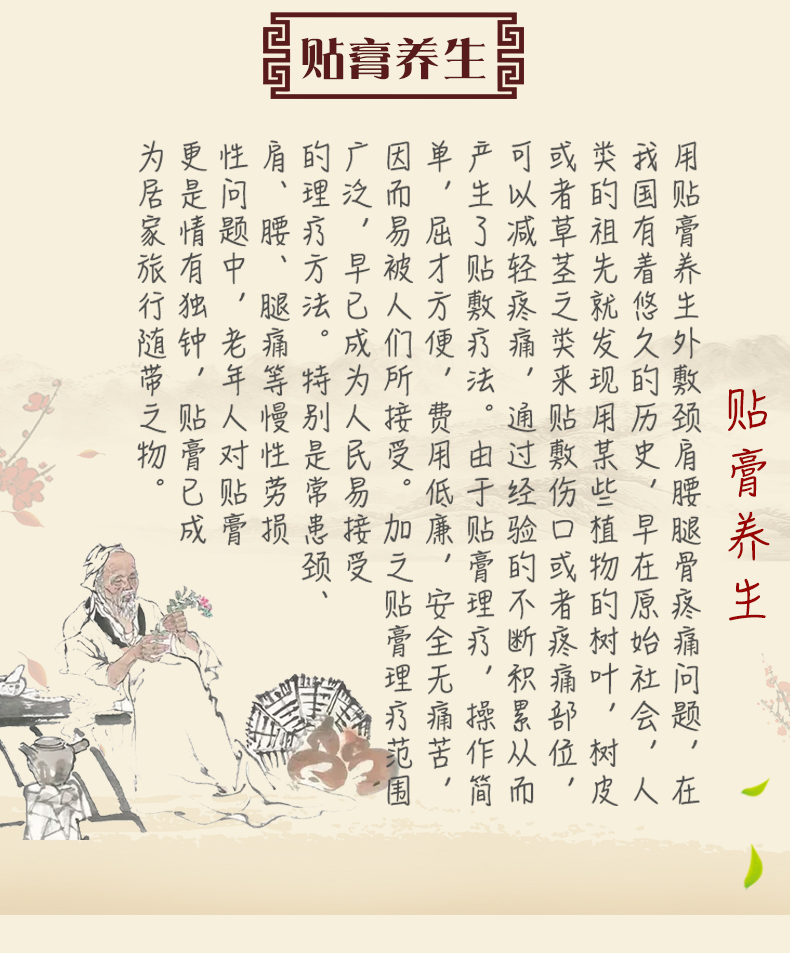 贴膏养生
贴膏养生
用贴膏养生外敷颈肩腰腿骨疼痛问题，在
我国有着悠久的历史，早在原始社会，人
类的祖先就发现用某些植物的树叶，树皮
或者草茎之类来贴敷伤口或者疼痛部位，
可以减轻疼痛，通过经验的不断积累从而
产生了贴敷疗法。由于贴膏理疗，操作简
单，屈才方便，费用低廉，安全无痛苦，
因而易被人们所接受。加之贴膏理疗范围
广泛，早已成为人民易接受
的理疗方法。特别是常患颈、
肩、腰、腿痛等慢性劳损
性问题中，老年人对贴膏
更是情有独钟，贴膏已成
为居家旅行随带之物。